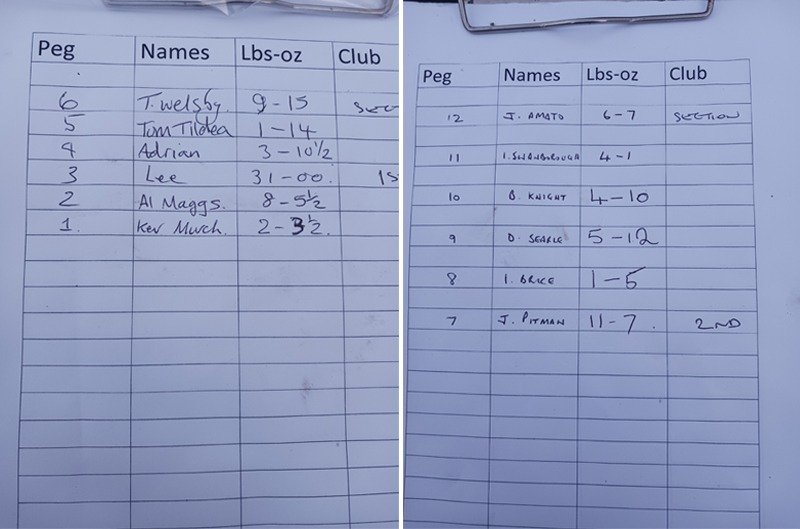 Peg Names Lbs-oz Club
6 T. Welsby. 9-15
5 Tom Tildea 1-14
4 Adrian 3-10½
3 Lee 31-00.
2 Al Maggs. 8-5½
1. Kev Murch. 2-3½.
Peg Names Lbs-oz Club
12 J. AMATO 6-7 SECTION
11 I. SWANBOROUGH 4-1
10 B. KNIGHT 4-10
9 D. SEARLE 5-12
8 I. BRICE 1-5
7 J. PITMAN 11-7. 2ND